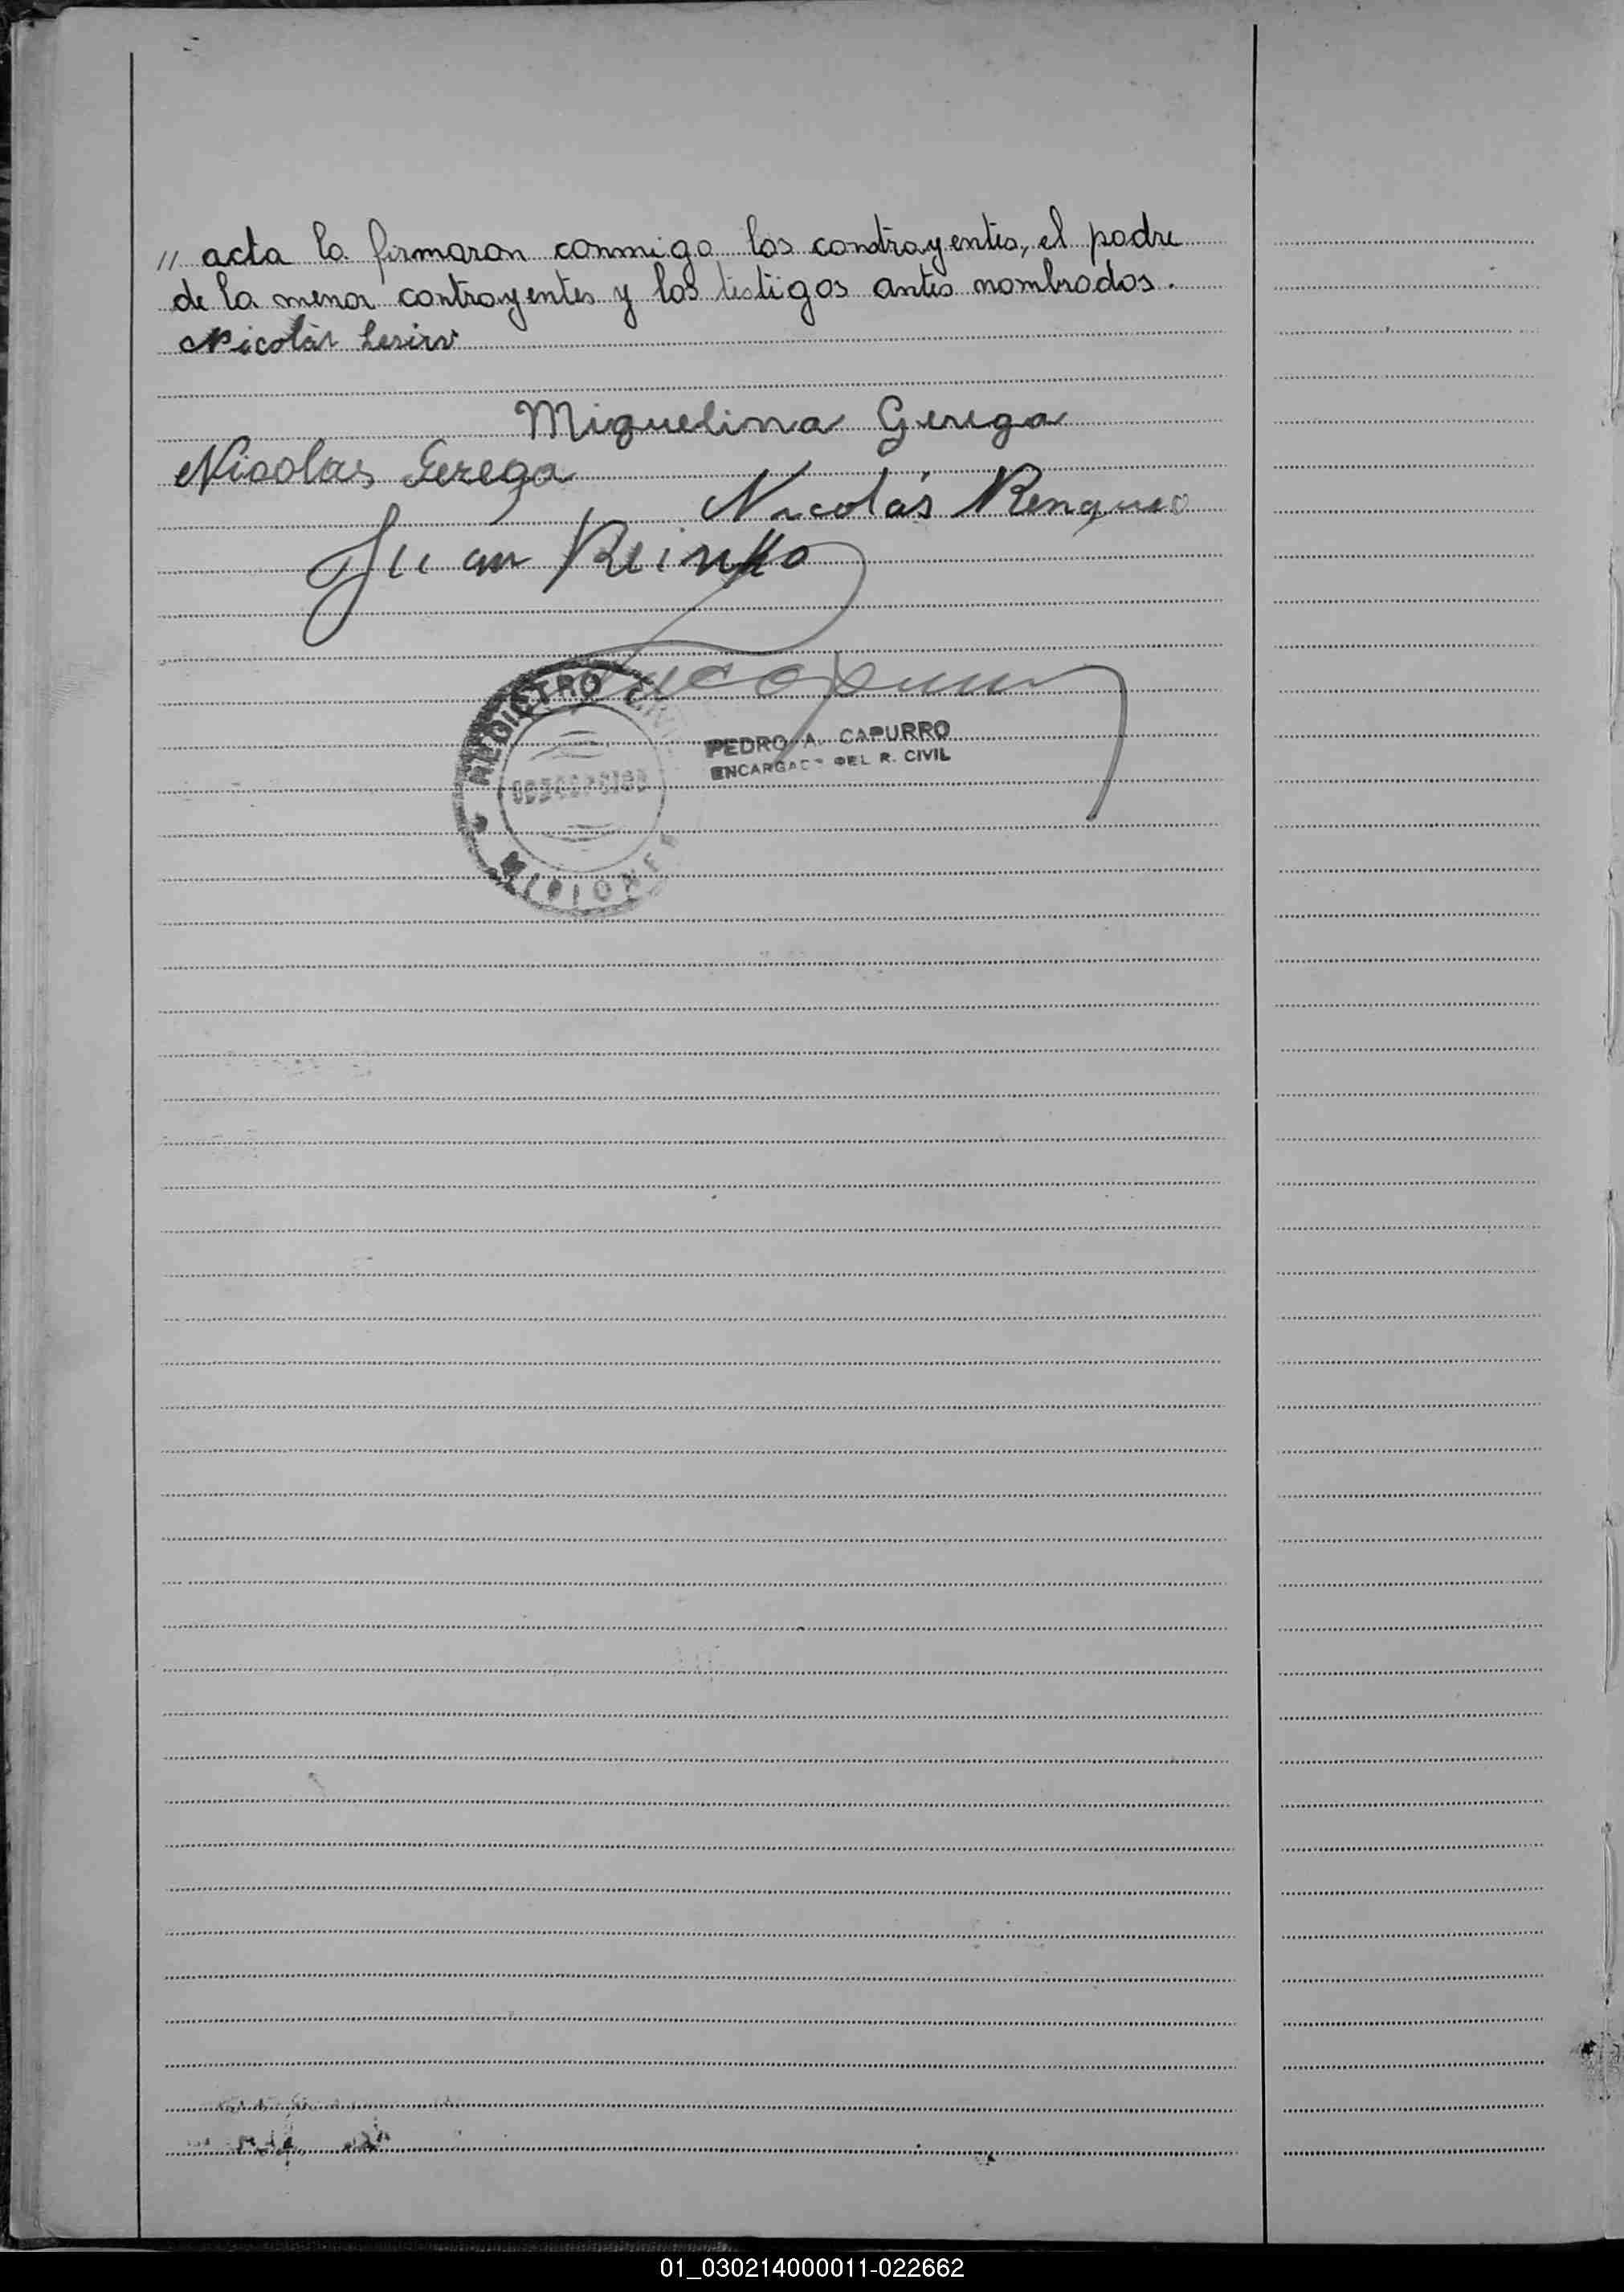 // acta la firmaron conmigo los contrayentes, el padre
de la menor contrayentes y los testigos antes nombrados.
Nicolás
Miguelina Gerega
Nicolas Gerega
Nicolás
Juan
REGISTRO CIVIL
MISIONES
PEDRO A. CAPURRO
ENCARGADO DEL R. CIVIL
01_030214000011-022662